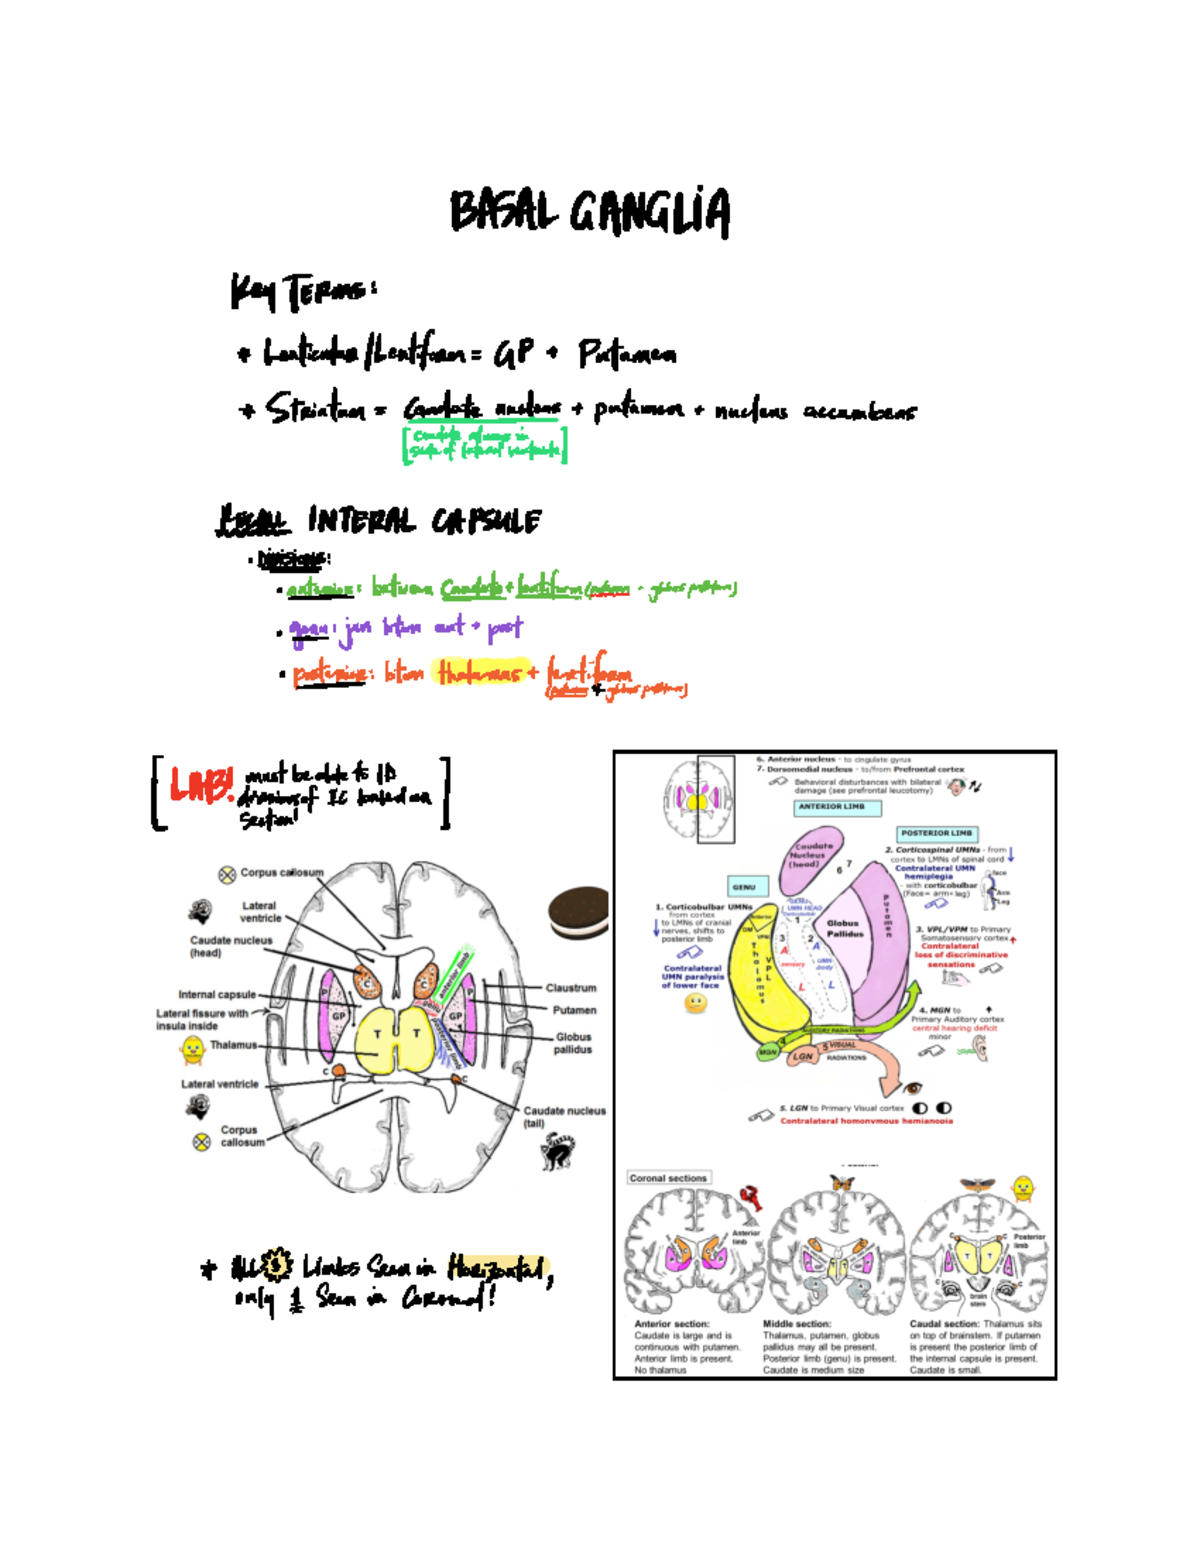 BASAL GANGLIA
Key Terms:
* Lenticular/Lentiform = GP + Putamen
* Striatum = Caudate nucleus + putamen + nucleus accumbens
[Caudate always in
side of lateral ventricle]
RECALL INTERAL CAPSULE
• Divisions:
• anterior: between Caudate + lentiform (putamen + globus pallidus)
• genu: jxn btwn ant + post
• posterior: btwn thalamus + lentiform
(putamen + globus pallidus)
[LAB! must be able to ID
divisions of IC based on
section]
Corpus callosum
Lateral
ventricle
Caudate nucleus
(head)
Internal capsule
Lateral fissure with
insula inside
Thalamus
Lateral ventricle
Corpus
callosum
anterior limb
genu
posterior limb
C
C
P
P
GP
GP
T
T
C
C
Claustrum
Putamen
Globus
pallidus
Caudate nucleus
(tail)
* ALL 3 Limbs Seen in Horizontal,
only 1 Seen in Coronal!
6. Anterior nucleus - to cingulate gyrus
7. Dorsomedial nucleus - to/from Prefrontal cortex
Behavioral disturbances with bilateral
damage (see prefrontal leucotomy)
ANTERIOR LIMB
Caudate
Nucleus
(head)
6 7
POSTERIOR LIMB
2. Corticospinal UMNs - from
cortex to LMNs of spinal cord
Contralateral UMN
hemiplegia
- with corticobulbar
(Face= arm= leg)
Face
Arm
Leg
GENU
1. Corticobulbar UMNs
from cortex
to LMNs of cranial
nerves, shifts to
posterior limb
Contralateral
UMN paralysis
of lower face
UMN HEAD
1
Anterior
DM
VPM
Thalamus
VPL
3
A
sensory
L
2
A
UMN
body
L
Globus
Pallidus
Putamen
3. VPL/VPM to Primary
Somatosensory cortex
Contralateral
loss of discriminative
sensations
4. MGN to
Primary Auditory cortex
central hearing deficit
minor
AUDITORY RADIATIONS
4
MGN
LGN
5 VISUAL
RADIATIONS
5. LGN to Primary Visual cortex
Contralateral homonymous hemianopia
Coronal sections
Anterior
limb
Posterior
limb
T
T
C
C
brain
stem
Anterior section:
Caudate is large and is
continuous with putamen.
Anterior limb is present.
No thalamus
Middle section:
Thalamus, putamen, globus
pallidus may all be present.
Posterior limb (genu) is present.
Caudate is medium size
Caudal section: Thalamus sits
on top of brainstem. If putamen
is present the posterior limb of
the internal capsule is present.
Caudate is small.